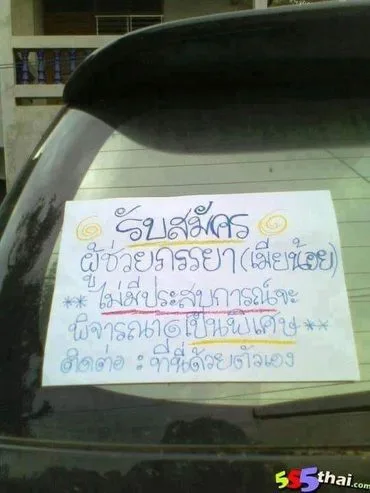 ๑ รับสมัคร ๑
ผู้ช่วยภรรยา(เมียน้อย)
** ไม่มีประสบการณ์จะ
พิจารณาเป็นพิเศษ **
ติดต่อ : ที่นี่ด้วยตัวเอง
555thai.com